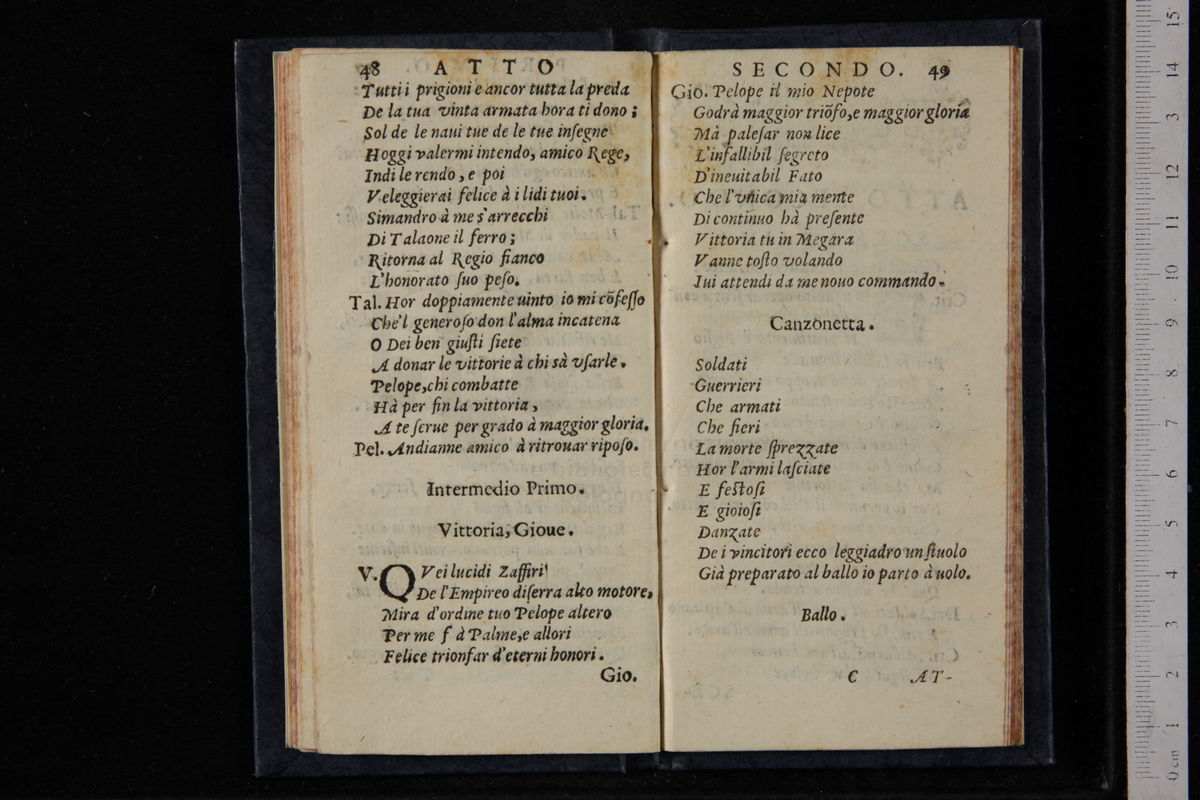 48 ATTO
Tutti i prigioni e ancor tutta la preda
De la tua vinta armata hora ti dono ;
Sol de le naui tue de le tue inſegne
Hoggi valermi intendo, amico Rege,
Indi le rendo, e poi
Veleggierai felice à i lidi tuoi.
Simandro à me s'arrecchi
Di Talaone il ferro ;
Ritorna al Regio fianco
L'honorato ſuo peſo.
Tal. Hor doppiamente uinto io mi cõfeſſo
Che'l generoſo don l'alma incatena
O Dei ben giuſti ſiete
A donar le vittorie à chi sà vſarle.
Pelope, chi combatte
Hà per fin la vittoria,
A te ſerue per grado à maggior gloria.
Pel. Andianne amico à ritrouar ripoſo.
Intermedio Primo.
Vittoria, Gioue.
V. QVei lucidi Zaffiri
De l'Empireo diſerra alto motore,
Mira d'ordine tuo Pelope altero
Per me frà Palme, e allori
Felice trionfar d'eterni honori.
Gio.
SECONDO. 49
Gio. Pelope il mio Nepote
Godrà maggior triõfo, e maggior gloria
Mà paleſar non lice
L'infallibil ſegreto
D'ineuitabil Fato
Che l'vnica mia mente
Di continuo hà preſente
Vittoria tu in Megara
Vanne toſto volando
Iui attendi da me nouo commando.
Canzonetta.
Soldati
Guerrieri
Che armati
Che fieri
La morte ſprezzate
Hor l'armi laſciate
E feſtoſi
E gioioſi
Danzate
De i vincitori ecco leggiadro un ſtuolo
Già preparato al ballo io parto à uolo.
Ballo.
C AT-
0 cm 1 2 3 4 5 6 7 8 9 10 11 12 3 14 15